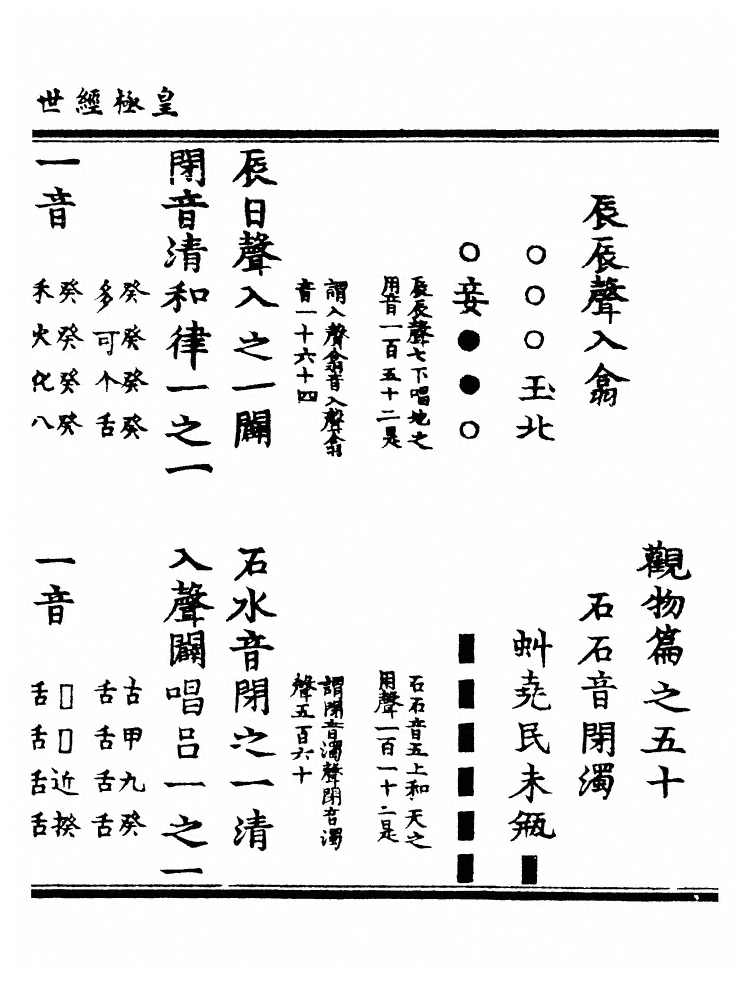 皇極經世
觀物篇之五十
辰辰聲入翕
石石音閉濁
○○○玉北
虯堯民未瓶■
○妾●●○
■■■■■■
辰辰聲七下唱地之
用音一百五十二是
謂入聲翕音入聲翕
音一十六十四
石石音五上和天之
用聲一百一十二是
謂閉音濁聲閉音濁
聲五百六十
辰日聲入之一闢
閉音清和律一之一
石水音閉之一清
入聲闢唱呂一之一
一音
癸癸癸癸
多可个舌
癸癸癸癸
禾火化八
一音
古甲九癸
舌舌舌舌
□□近揆
舌舌舌舌